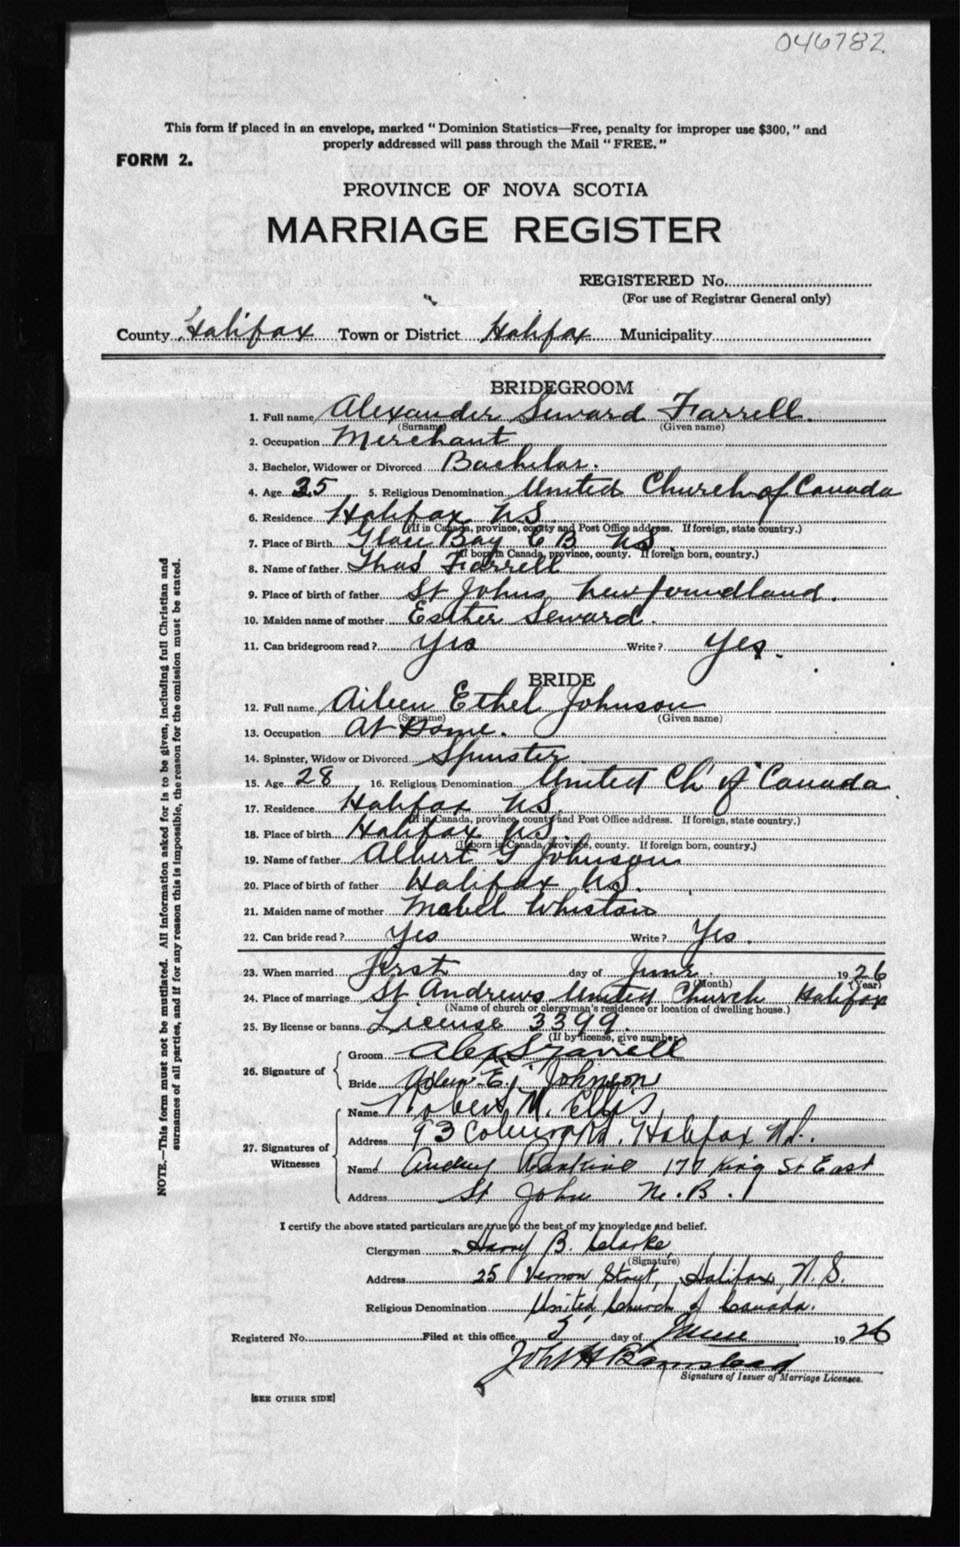 046782
This form if placed in an envelope, marked "Dominion Statistics—Free, penalty for improper use $300," and
properly addressed will pass through the Mail "FREE."
FORM 2.
PROVINCE OF NOVA SCOTIA
MARRIAGE REGISTER
REGISTERED No.
(For use of Registrar General only)
County Halifax Town or District Halifax Municipality
BRIDEGROOM
1. Full name Alexander Seward Farrell
(Surname) (Given name)
2. Occupation Merchant
3. Bachelor, Widower or Divorced Bachelor.
4. Age 35 5. Religious Denomination United Church of Canada
6. Residence Halifax N.S.
(If in Canada, province, county and Post Office address. If foreign, state country.)
7. Place of Birth Glace Bay C B N.S.
(If born in Canada, province, county. If foreign born, country.)
8. Name of father Thos Farrell
9. Place of birth of father St Johns Newfoundland.
10. Maiden name of mother Esther Seward.
11. Can bridegroom read? Yes Write? Yes.
BRIDE
12. Full name Aileen Ethel Johnson
(Surname) (Given name)
13. Occupation At Home.
14. Spinster, Widow or Divorced Spinster
15. Age 28 16. Religious Denomination United Ch of Canada.
17. Residence Halifax N.S.
(If in Canada, province, county and Post Office address. If foreign, state country.)
18. Place of birth Halifax N.S.
(If born in Canada, province, county. If foreign born, country.)
19. Name of father Albert G Johnson
20. Place of birth of father Halifax N.S.
21. Maiden name of mother Mabel Whiston
22. Can bride read? Yes Write? Yes.
23. When married First day of June. 1926
(Month) (Year)
24. Place of marriage St Andrews United Church Halifax
(Name of church or clergyman's residence or location of dwelling house.)
25. By license or banns License 3399.
(If by license, give number.)
26. Signature of
Groom Alex S Farrell
Bride Aileen E. Johnson
27. Signatures of Witnesses
Name Robert M. Ellis
Address 93 Rd. Halifax N.S.
Name Audrey Rankine 177 King St East
Address St John N.B.
I certify the above stated particulars are true to the best of my knowledge and belief.
Clergyman Harry B. Clarke
(Signature)
Address 25 Vernon Street, Halifax, N.S.
Religious Denomination United Church of Canada.
Registered No. Filed at this office 5 day of June 1926
John H Barnstead
Signature of Issuer of Marriage Licenses.
[SEE OTHER SIDE]
NOTE.—This form must not be mutilated. All information asked for is to be given, including full Christian and
surnames of all parties, and if for any reason this is impossible, the reason for the omission must be stated.